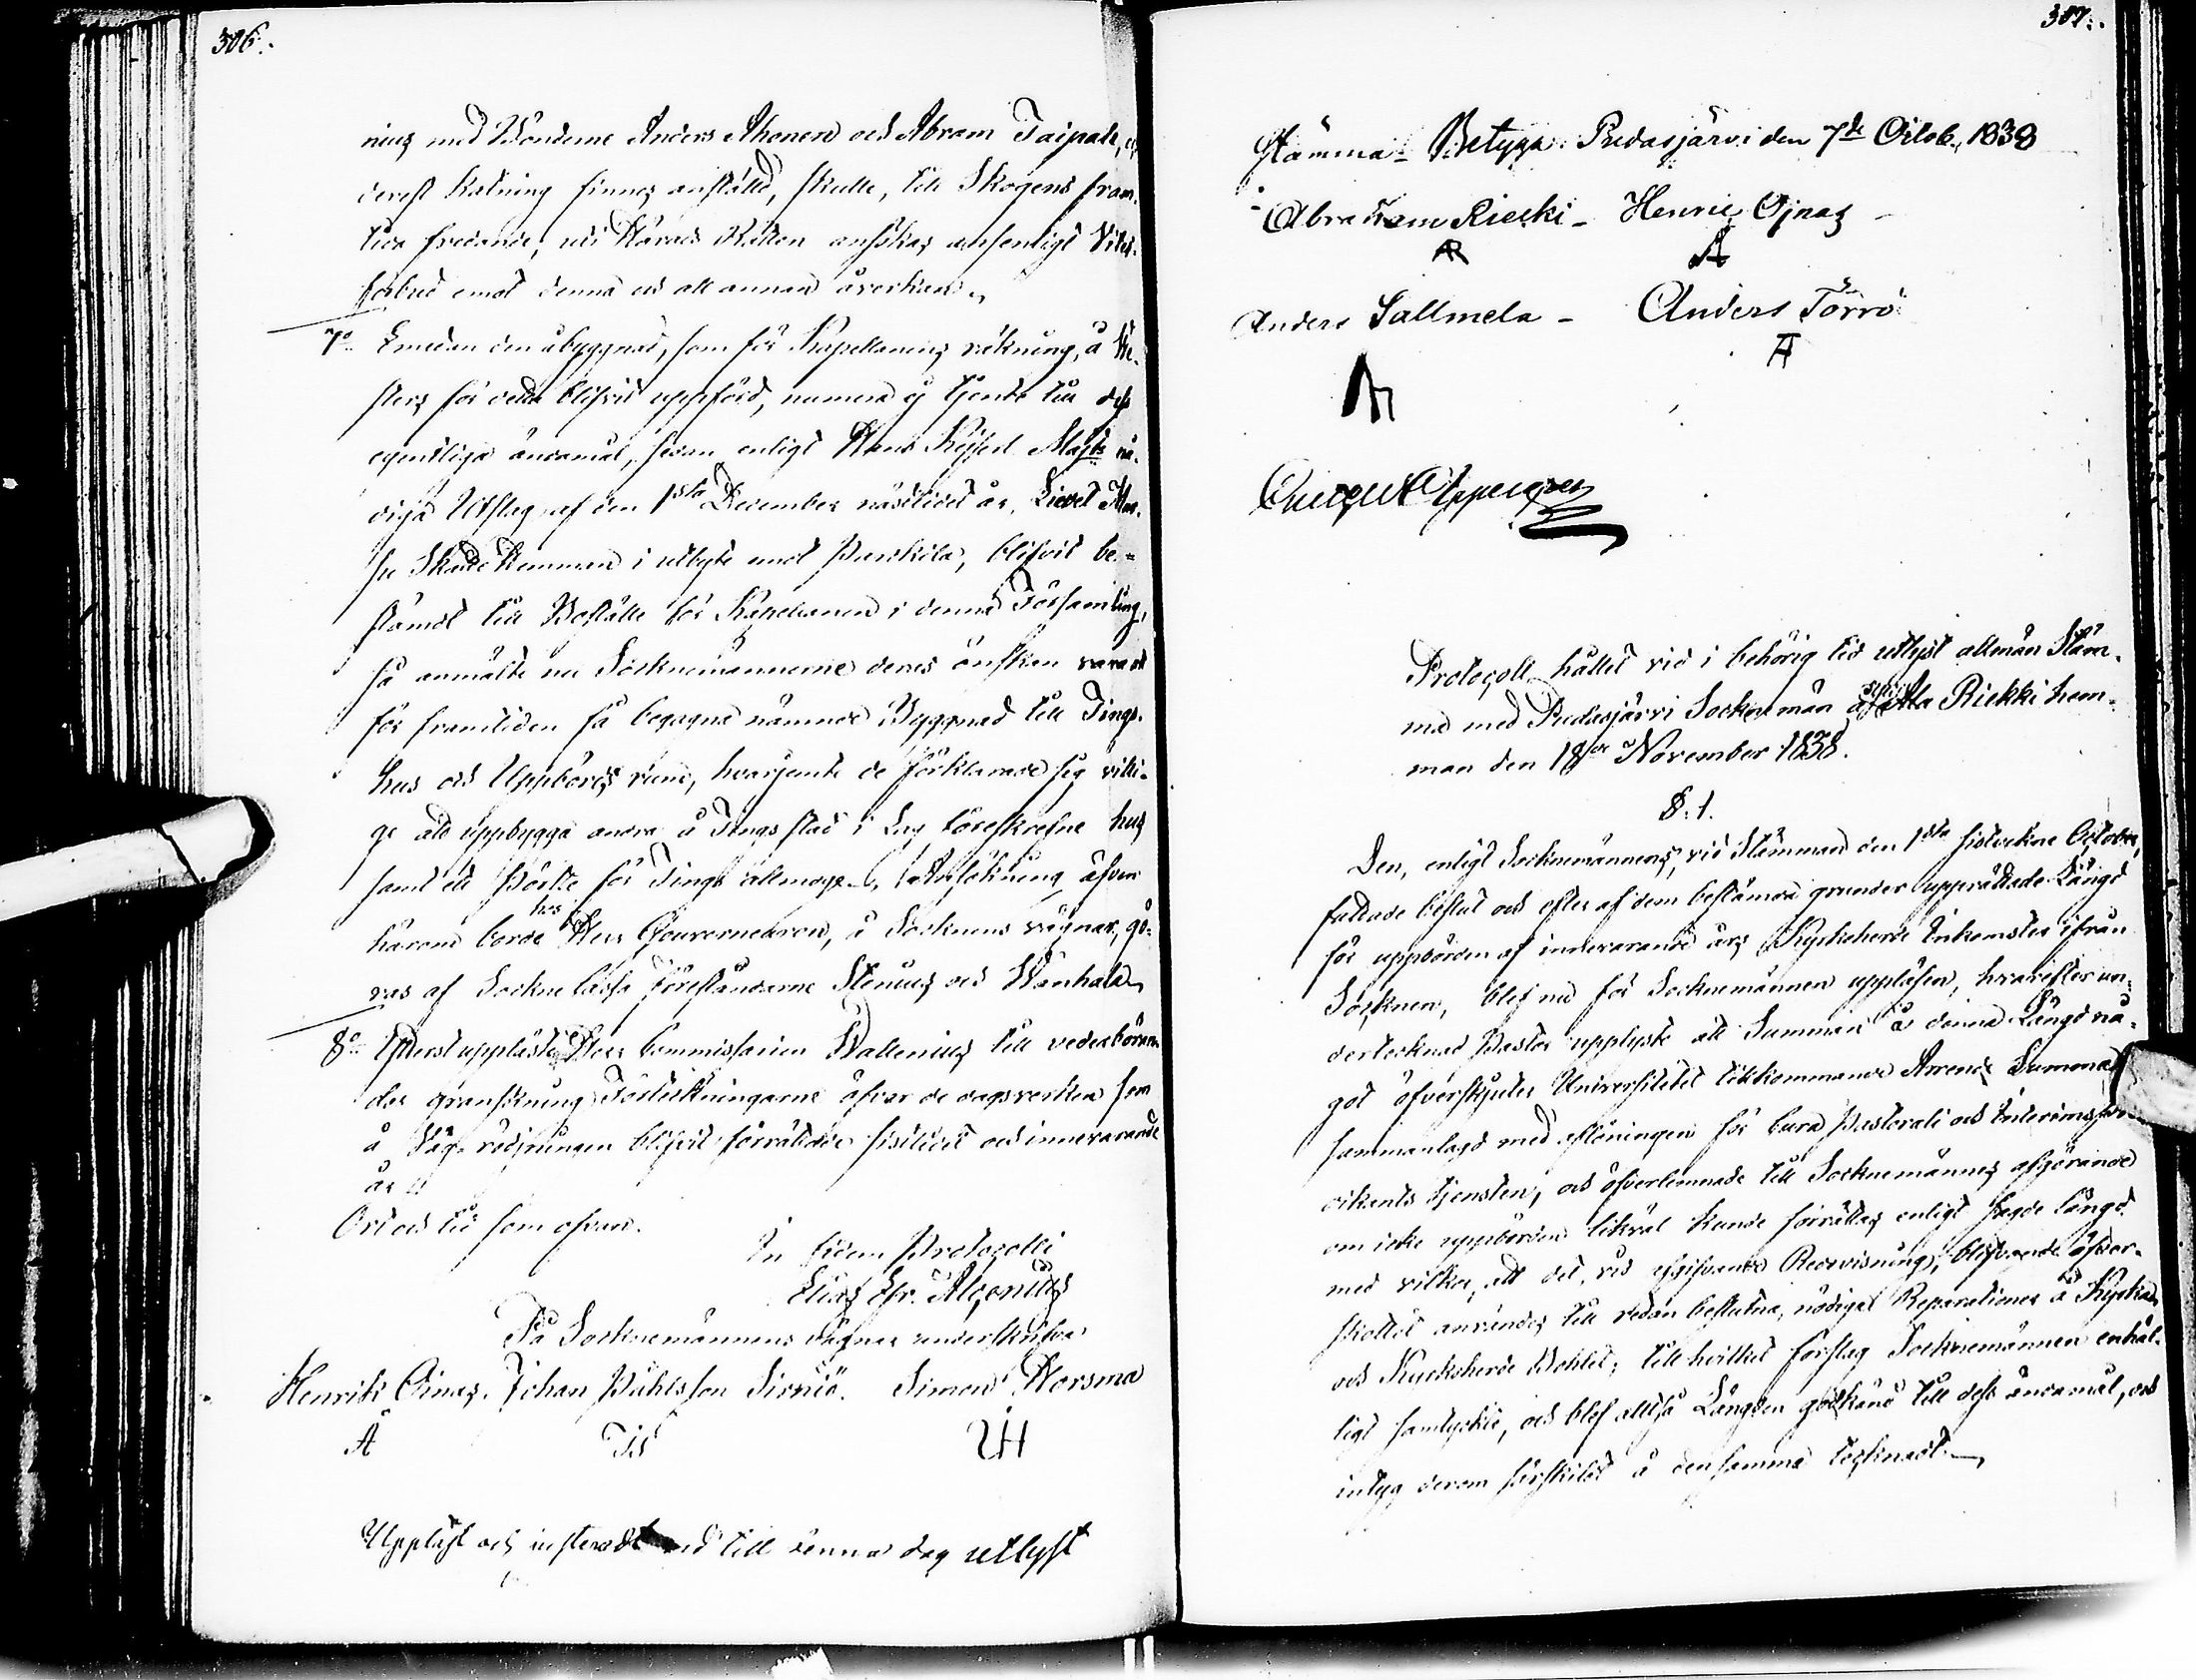 306.
nius med Bönderne Anders Ahonen och Abram Taipale, och
derest skatning finnes anstäld, skulle, till Skogens fram-
tida fredande, uti Härads Rätten anhållas ansenligt Vites-
förbud emot denna och all annan åverkan.
7o Emedan den åbyggnad, som för Kapellanens räkning, å
för detta blifvit uppförd, numera ej tjente till dess
egentliga ändamål, sedan enligt Hans Kejserl. Majts nå-
diga Utslag af den 1sta December nästlidit år,
Skatte Hemman i utbyte emot Parkila, blifvit be-
stämdt till Boställe för Kapellanen i denna Församling,
så anmälte nu Socknemännerne deras önskan vara att
för framtiden få begagna nämnde Byggnad till Tings-
hus och Uppbörds rum, hvarjemte de förklarade sig villi-
ge att uppbygga andra å Tings stad i Lag föreskrefne hus
samt ett Pörte för Tings allmoge. Ansökning äfven
härom borde hos Herr Gouverneuren, å Socknens vägnar, gö-
ras af Sockne Cassa Föreståndarne Stenius och Wanhala.
8o Ytterst upplästes Herr Commissarien Wallenius till vederböran-
des granskning Förteckningarne öfver de dagsverken som
å Väg rödjningen blifvit förrättade sistlidit och innevarande
år
Ort och tid som ofvan.
In fidem Protocolli
Elias Efr. Alcenius
På Socknemännens vägnar underskrifva
Henrik Oinas. Johan Pählsson Sirniö. Simon Horsma
Uppläst och justeradt vid till denna dag utlyst
307.
Stämma - Betygar. Pudasjärvi den 7de Octob. 1838
Abraham Riecki - Henric Ojnas -
AR
Anders Sallmela - Anders Törrö
Protocoll hållet vid i behörig tid utlyst allmän Stäm-
ma med Pudasjärvi Socknemän å Ala Riekki hem-
man den 18de November 1838.
§. 1.
Den, enligt Socknemännens, vid Stämman den 1sta sistvekne October,
fattade beslut och efter af dem bestämda grunder upprättade Längd
för uppbörden af innevarande års Kyrkoherde Inkomster ifrån
Socknen, blef nu för Socknemännen uppläsen, hvarefter un-
dertecknad Pastor upplyste att Summan å denna Längd nå-
got öfverskjuter Universitetet tillkommande Arrende Summa
sammanlagd med aflöningen för Cura Pastorali och Interims
vikants tjensten, och öfverlemnade till Socknemännens afgörande
om icke uppbörden likväl kunde förrättas enligt sagde längd
med vilkor, att det, vid afgifvande Redovisning, blifvande öfver-
skottet användes till redan beslutna, nödiga Reparationer å Kyrkan
och Kyrkoherde Bohlet; till hvilket förslag Socknemännen enhäl-
ligt samtyckte, och blef alltså Längden godkänd till dess ändamål, och
intyg derom särskildt å densamma tecknadt.